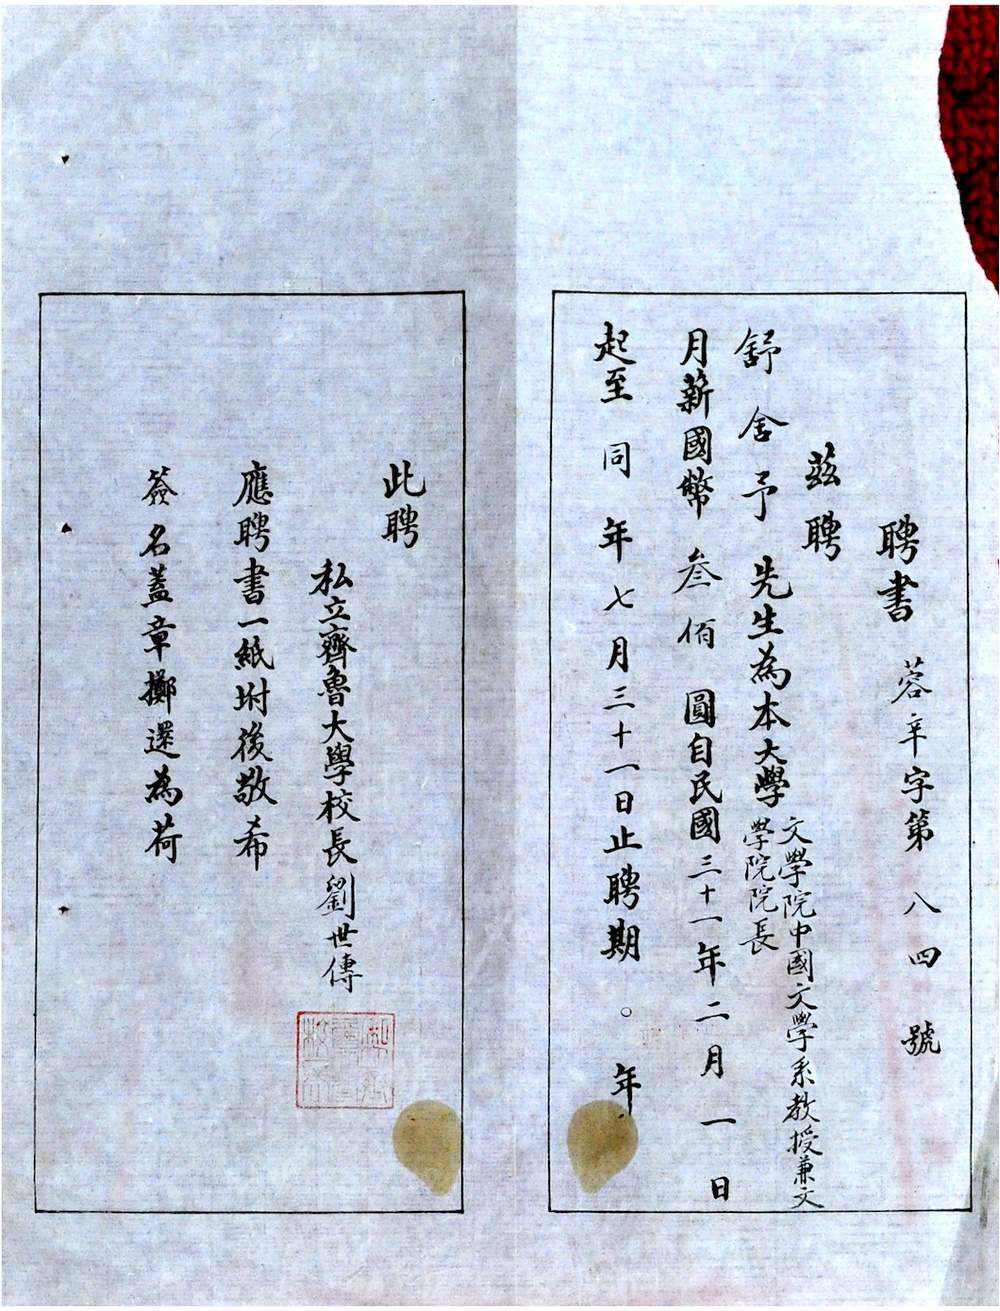 聘書 蓉辛字第八四號
茲聘
舒舍予先生為本大學文學院中國文學系教授兼文
學院院長
月薪國幣叁佰圓自民國三十一年二月一日
起至同年七月三十一日止聘期。年
此聘
私立齊魯大學校長劉世傳
應聘書一紙坿後敬希
簽名蓋章擲還為荷